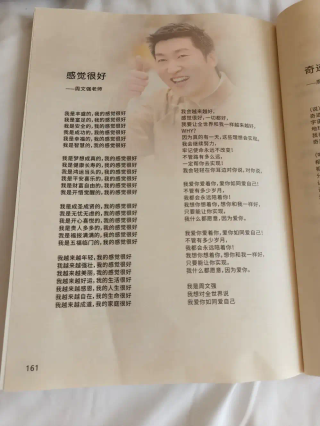 感觉很好
——周文强老师
我是丰盛的，我的感觉很好
我是富足的，我的感觉很好
我是安全的，我的感觉很好
我是成功的，我的感觉很好
我是幸福的，我的感觉很好
我是智慧的，我的感觉很好
我是梦想成真的，我的感觉很好
我是健康长寿的，我的感觉很好
我是鸿运当头的，我的感觉很好
我是平安喜乐的，我的感觉很好
我是财富自由的，我的感觉很好
我是开悟觉醒的，我的感觉很好
我是成圣成贤的，我的感觉很好
我是无忧无虑的，我的感觉很好
我是开心喜悦的，我的感觉很好
我是贵人多多的，我的感觉很好
我是福报满满的，我的感觉很好
我是五福临门的，我的感觉很好
我越来越年轻，我的感觉很好
我越来越强壮，我的感觉很好
我越来越美丽，我的感觉很好
我越来越好运，我的生活很好
我越来越感恩，我的人生很好
我越来越自在，我的生命很好
我越来越成道，我的家庭很好
我会越来越好，
感觉很好，一切都好。
我要让全世界和我一样越来越好。
WHY?
因为真的有一天，这些理想会实现。
我会继续努力，
牢记使命永远不改变！
不管路有多么远，
一定陪你去实现！
我会轻轻在你耳边对你说，对你说，
我爱你爱着你，爱你如同爱自己！
不管有多少岁月，
我都会永远陪着你！
我想你想着你，想你和我一样好，
只要能让你实现，
我什么都愿意，因为爱你。
我爱你爱着你，爱你如同爱自己！
不管有多少岁月，
我都会永远陪着你！
我想你想着你，想你和我一样好，
只要能让你实现，
我什么都愿意，因为爱你。
我是周文强
我想对全世界说
我爱你如同爱自己
161